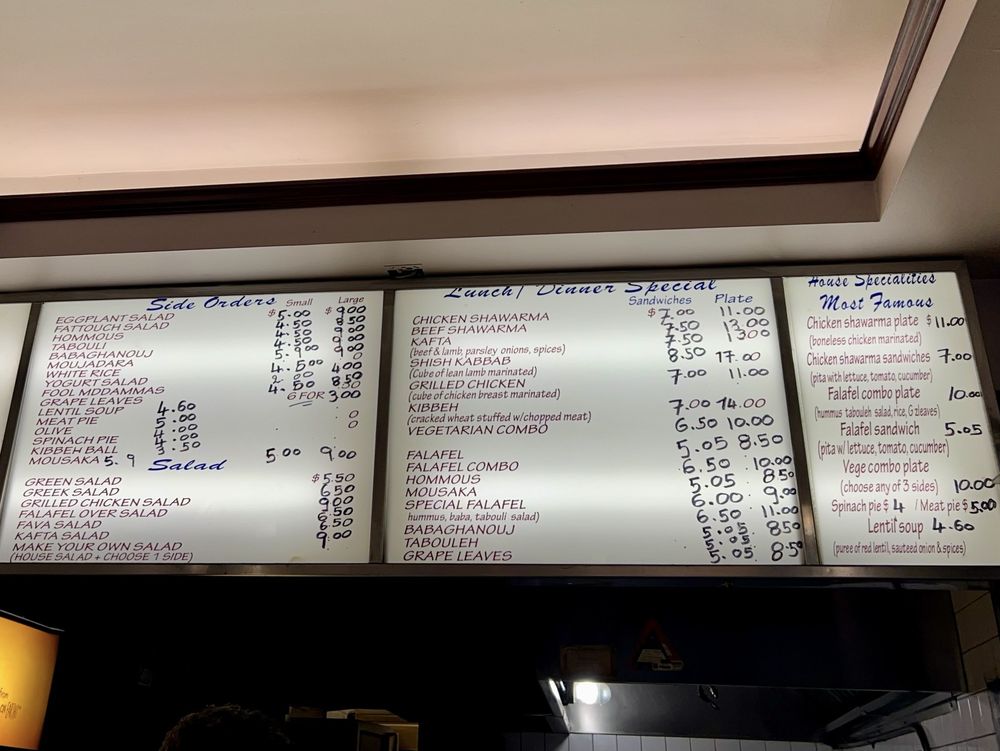 Side Orders
Small Large
EGGPLANT SALAD $5.00 $9.00
FATTOUCH SALAD 4.50 8.50
HOMMOUS 4.50
TABOULI 4.50
BABAGHANOUJ
MOUJADARA 4.500
WHITE RICE 4.00
YOGURT SALAD
FOOL MDDAMMAS
GRAPE LEAVES 6 FOR 3.00
LENTIL SOUP 4.60
MEAT PIE 5.00
OLIVE 4.00
SPINACH PIE 4.00
KIBBEH BALL 3.50
MOUSAKA 5.9 5.00 9.00
Salad
GREEN SALAD $5.50
GREEK SALAD 6.50
GRILLED CHICKEN SALAD
FALAFEL OVER SALAD
FAVA SALAD
KAFTA SALAD 9.00
MAKE YOUR OWN SALAD
(HOUSE SALAD + CHOOSE 1 SIDE)
Lunch/ Dinner Special
Sandwiches Plate
CHICKEN SHAWARMA $7.00 11.00
BEEF SHAWARMA 7.50 13.00
KAFTA 7.50 13.00
(beef & lamb, parsley onions, spices)
SHISH KABBAB 8.50 17.00
(Cube of lean lamb marinated)
GRILLED CHICKEN 7.00 11.00
(cube of chicken breast marinated)
KIBBEH 7.00 14.00
(cracked wheat stuffed w/chopped meat)
VEGETARIAN COMBO 6.50 10.00
FALAFEL 5.05 8.50
FALAFEL COMBO 6.50 10.00
HOMMOUS 5.05 8.50
MOUSAKA 6.00 9.00
SPECIAL FALAFEL 6.50 11.00
hummus, baba, tabouli salad)
BABAGHANOUJ 8.50
TABOULEH
GRAPE LEAVES 5.05 8.50
House Specialities
Most Famous
Chicken shawarma plate $11.00
(boneless chicken marinated)
Chicken shawarma sandwiches 7.00
(pita with lettuce, tomato, cucumber)
Falafel combo plate 10.00
(hummus tabouleh salad, rice, G zleaves)
Falafel sandwich 5.05
(pita w/ lettuce, tomato, cucumber)
Vege combo plate
(choose any of 3 sides) 10.00
Spinach pie $ 4 / Meat pie $ 5.00
Lentil soup 4.60
(puree of red lentil, sauteed onion & spices)